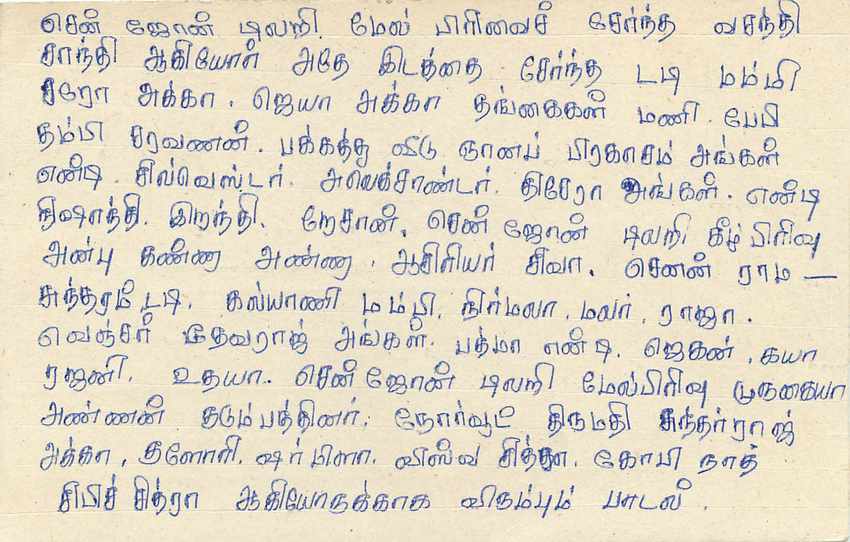 சென் ஜோன் டிலறி. மேல் பிரிவைச் சேர்ந்த வசந்தி
சாந்தி ஆகியோர் அதே கிடத்தை சேர்ந்த டடி மம்மி
சரோ அக்கா. ஜெயா அக்கா தங்கைகள் மணி. பேபி
தம்பி சரவணன். பக்கத்து வீடு ஞானப் பிரகாசம் அங்கள்
எண்டி. சில்வெஸ்டர். அலெக்சாண்டர். திசேரா அங்கள். எண்டி
நிஷாந்தி. இறந்தி. றேசான். சென் ஜோன் டிலறி கீழ் பிரிவு
அன்பு கண்ணா அண்ணா. ஆசிரியர் சிவா. சௌன் ராம —
சுந்தரம் டடி. கல்யாணி மம்மி. நிர்மலா. மலர். ராஜா.
வெஞ்சர் தேவராஜ் அங்கள். பத்மா எண்டி. ஜெகன். கயா
ரஜனி. உதயா. சென் ஜோன் டிலறி மேல்பிரிவு முருகையா
அண்ணன் குடும்பத்தினர். நோர்வூட் திருமதி சுந்தர்ராஜ்
அக்கா, தனோரி. ஷர்மிளா. விஸ்வ சித்தா. கோபி நாத்
சிபிச் சித்ரா ஆகியோருக்காக விரும்பும் பாடல்.